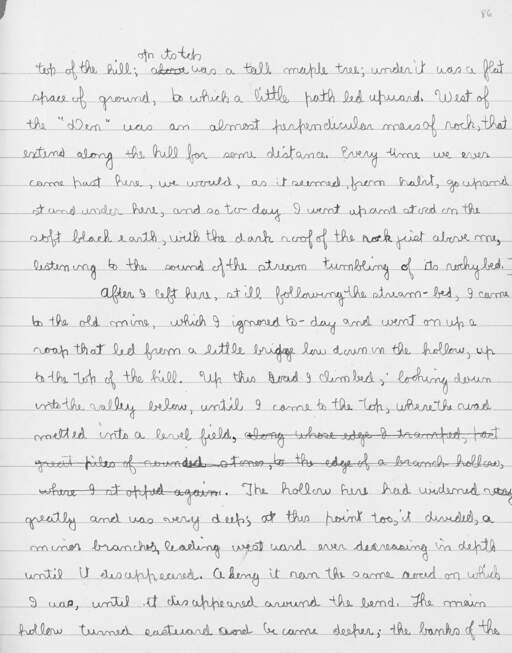 86
on its top
top of the hill; above was a tall maple tree; under it was a flat
space of ground, to which a little path led upward. West of
the "Den" was an almost perpendicular mass of rock, that
extend along the hill for some distance. Every time we ever
came past here, we would, as it seemed, from habit, go up and
stand under here, and so to-day I went up and stood on the
soft black earth, with the dark roof of the rock just above me,
listening to the sound of the stream tumbling of its rocky bed.
After I left here, still following the stream-bed, I came
to the old mine, which I ignored to-day and went on up a
roap that led from a little bridge low down in the hollow, up
to the top of the hill. Up this Road I climbed, looking down
into the valley below, until I came to the top, where the road
melted into a level field, along whose edge I tramped, past
great piles of rounded stones, to the edge of a branch hollow,
where I stopped again. The hollow here had widened very
greatly and was very deep; at this point too, it divided, a
minor branches, leading westward ever decreasing in depth
until it disappeared. Along it ran the same road on which
I was, until it disappeared around the bend. The main
hollow turned eastward and became deeper; the banks of the